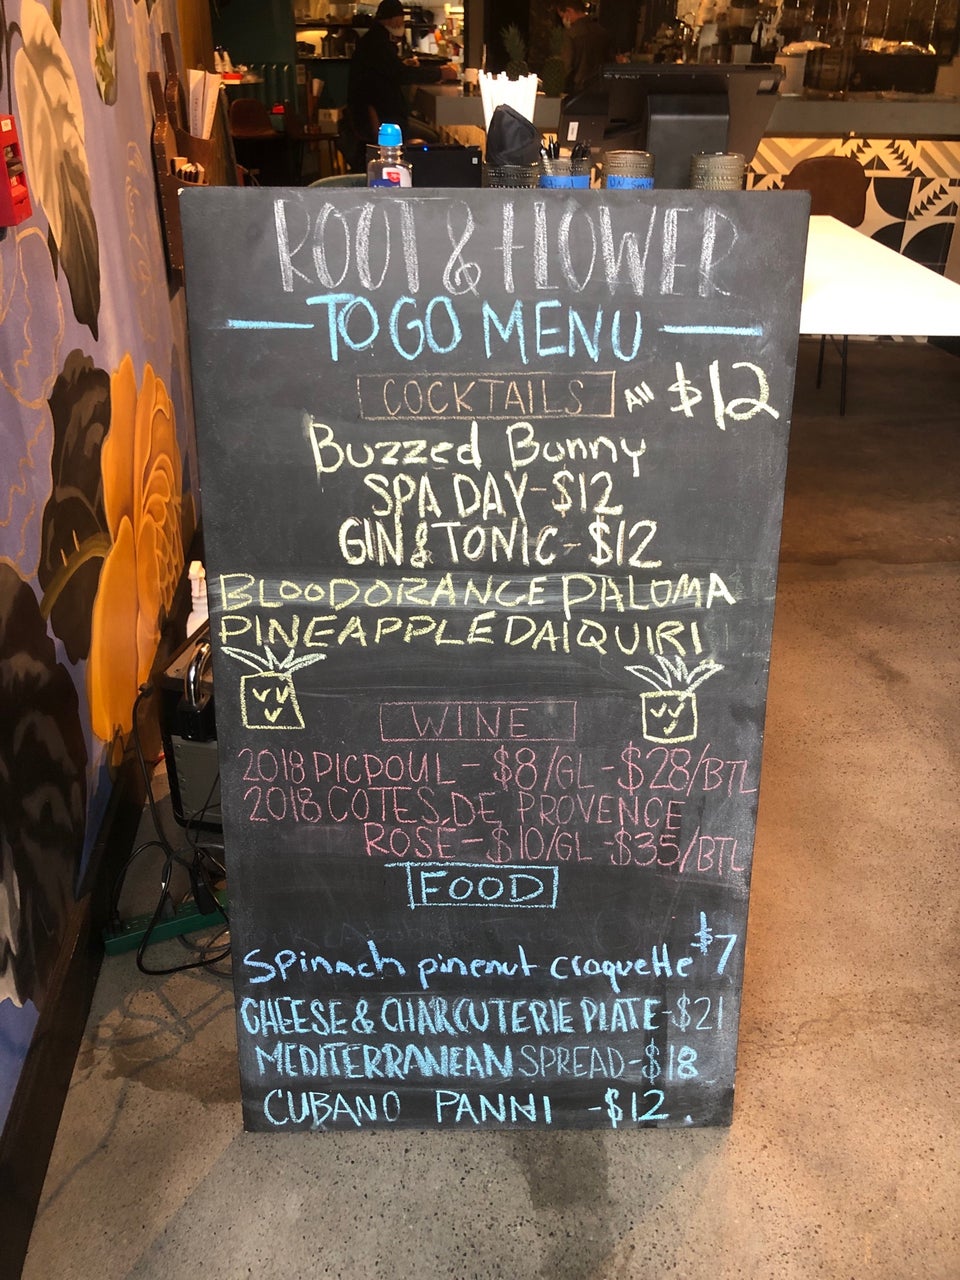 ROOT & FLOWER
TO GO MENU
COCKTAILS All $12
Buzzed Bunny
SPA DAY - $12
GIN & TONIC - $12
BLOOD ORANGE PALOMA
PINEAPPLE DAIQUIRI
WINE
2018 PICPOUL - $8/GL - $28/BTL
2018 COTES DE PROVENCE
ROSE - $10/GL - $35/BTL
FOOD
Spinach pinenut croquette $7
CHEESE & CHARCUTERIE PLATE - $21
MEDITERRANEAN SPREAD - $18
CUBANO PANNI - $12.